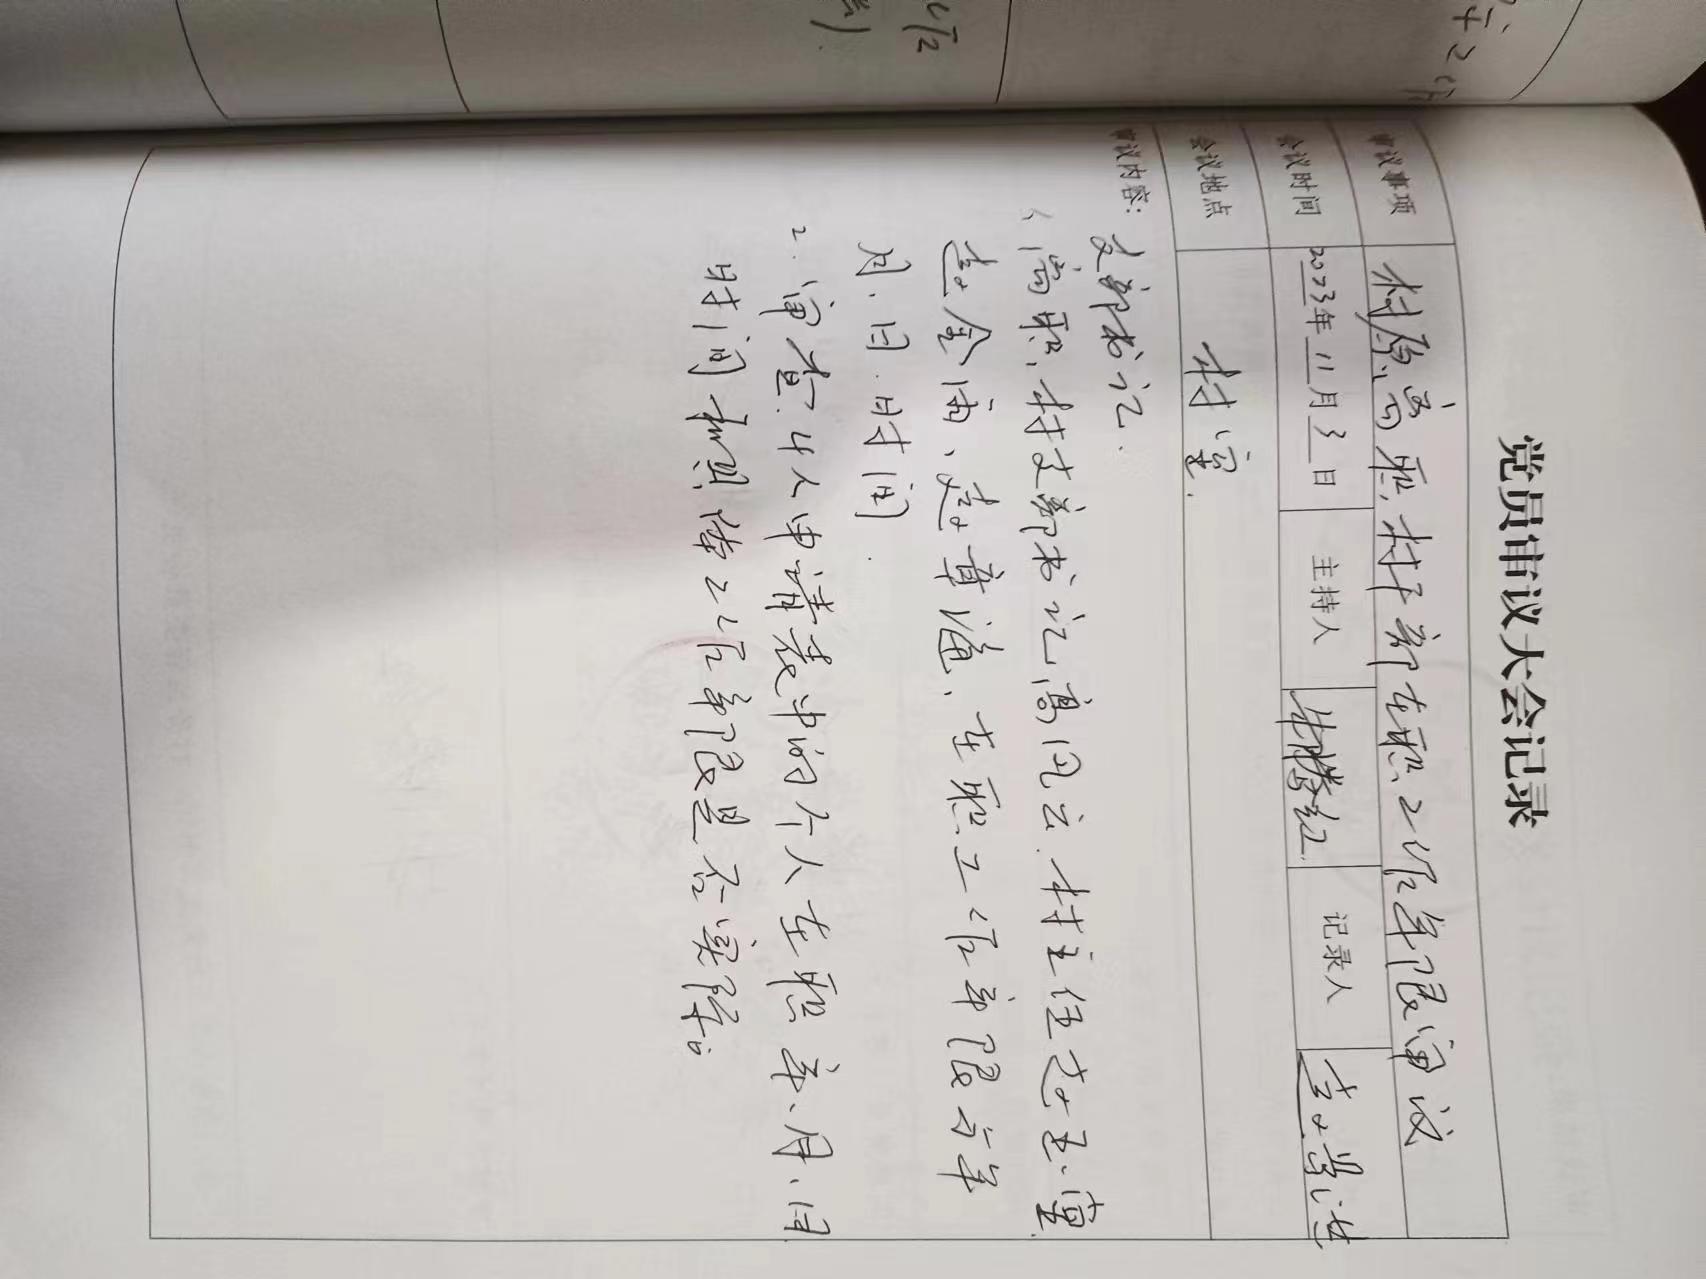 党员审议大会记录
审议事项 村原离职村干部在职工作年限审议
会议时间 2023年11月3日 主持人 记录人
会议地点 村室.
审议内容:
支部书记.
1、离职村支部书记高风云.村主任赵玉
赵金雨、赵章通、在职工作年限与年
月.日.时间.
2.审查4人申请表中的个人在职年、月、日
时间和职务工作年限是否实际。